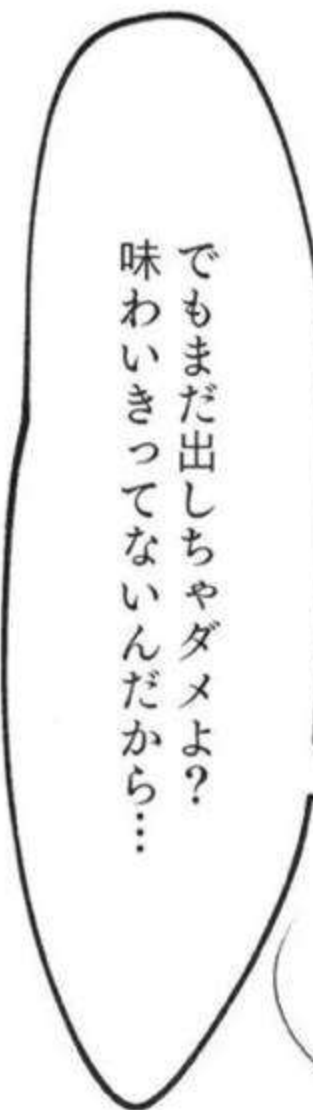 でもまだ出しちゃダメよ?
味わいきってないんだから…